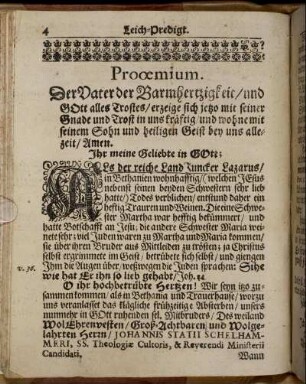 4 Leich-Predigt.
Prooemium.
Der Vater der Barmhertzigkeit/ und
GOtt alles Trostes/ erzeige sich jetzo mit seiner
Gnade und Trost in uns kräftig und wohne mit
seinem Sohn und heiligen Geist bey uns alle-
zeit/ Amen.
Ihr meine Geliebte in GOtt:
ALs der reiche Land Juncker Lazarus/
in Bethanien wohnhafftig/ welchen JEsus
nebenst seinen beyden Schwestern sehr lieb
hatte/ Todes verblichen/ entstund daher ein
hefftig Trauren und Weinen. Die eine Schwe-
ster Martha war hefftig bekümmert/ und
hatte Botschafft an Jesu, die andere Schwester Maria wei-
nete sehr: viel Juden waren zu Martha und Maria kommen/
sie über ihren Bruder aus Mitleiden zu trösten; ja Christus
selbst ergrimmete im Geist/ betrübete sich selbst/ und giengen
Ihm die Augen über/ weswegen die Juden sprachen: Sihe
v. 36. wie hat Er ihn so lieb gehabt/ Joh.
O ihr hochbetrübte Hertzen! Wir seyn itzo zu-
sammen kommen/ als in Bethania und Trauerhaus/ worzu
uns veranlasset das klägliche frühzeitige Absterben/ unsers
nunmehr in GOtt ruhenden sel. Mitbruders/ Des weiland
Wol-Ehrenvesten/ Groß-Achtbaren/ und Wolge-
lahrten Herrn/ JOHANNIS STATII SCHELHAM-
MERI, SS. Theologiæ Cultoris, & Reverendi Ministerii
Candidati,
Wann